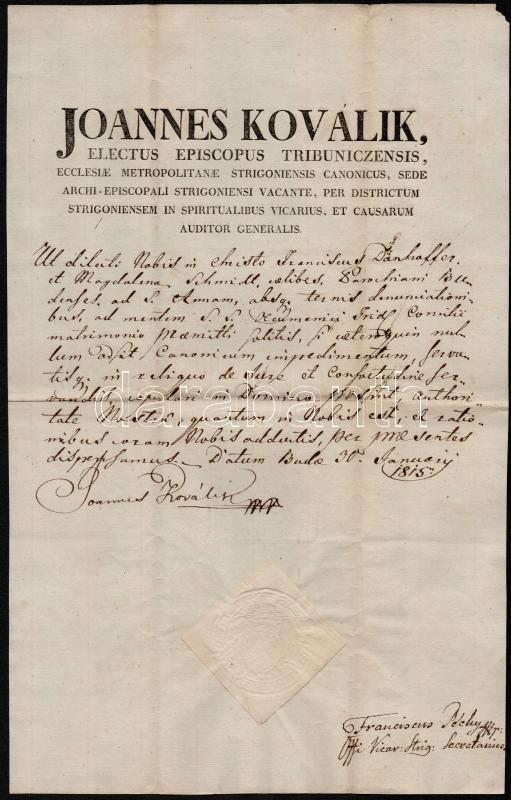 JOANNES KOVÁLIK,
ELECTUS EPISCOPUS TRIBUNICZENSIS,
ECCLESIÆ METROPOLITANÆ STRIGONIENSIS CANONICUS, SEDE
ARCHI-EPISCOPALI STRIGONIENSI VACANTE, PER DISTRICTUM
STRIGONIENSEM IN SPIRITUALIBUS VICARIUS, ET CAUSARUM
AUDITOR GENERALIS.
Ut dilecti Nobis in Christo Franciscus Danhoffer
et Magdalena Schmidt, cælibes, Parochiani Bu-
denses, ad S. Annam, absq. ternis denunciationi-
bus, ad mentem S. S. Œcumenici Trid. Concilii
matrimonio præmitti solitis, si cæteroquin nul-
lum adsit Canonicum impedimentum, serva-
tisq. in reliquo de jure et Consvetudine ser-
vandis copulari in Domino possint authori-
tate Nostra, quantum in Nobis est, et ratio-
nibus coram Nobis adductis, per præsentes
dispensamus. Datum Budæ 30. Januarij
1815.
Joannes Koválik
darabanti
Franciscus Péchy
Offi Vicar: Strig: Secretarius.